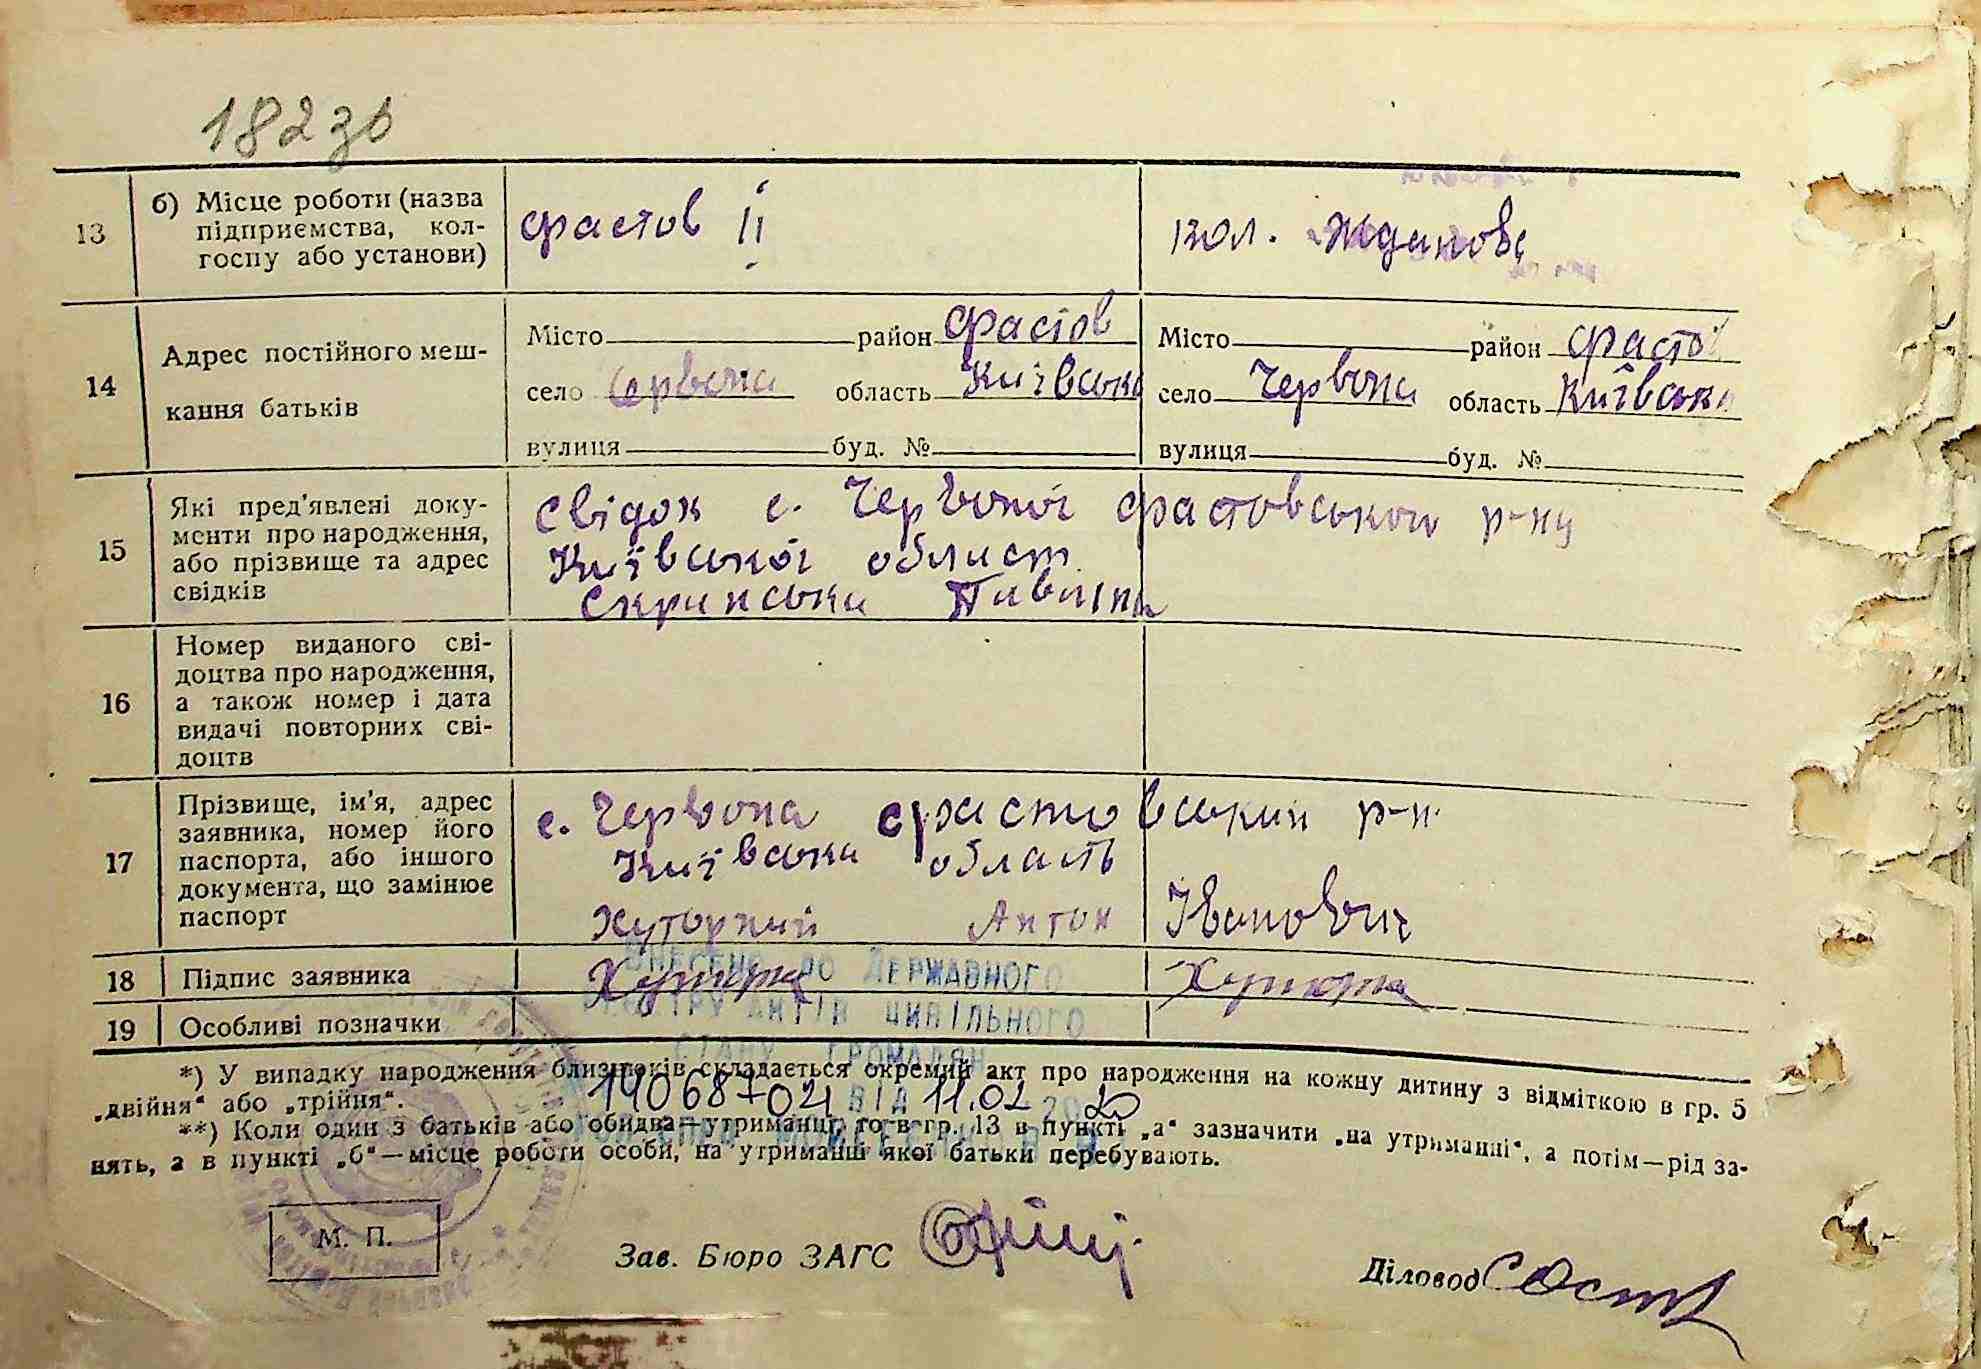 182 зв
13 б) Місце роботи (назва підприємства, колгоспу або установи) Фастов II кол. Жданова
14 Адрес постійного мешкання батьків
Місто район Фастов Місто район Фастів
село Червона область Київська село Червона область Київська
вулиця буд. № вулиця буд. №
15 Які пред'явлені документи про народження, або прізвище та адрес свідків
Свідок с. Червоної Фастовського р-ну
Київської област
Скринська Павліна
16 Номер виданого свідоцтва про народження, а також номер і дата видачі повторних свідоцтв
17 Прізвище, ім'я, адрес заявника, номер його паспорта, або іншого документа, що замінює паспорт
с. Червона Фастовський р-н.
Київська область
Хуторний Антон Іванович
18 Підпис заявника
19 Особливі позначки
Внесено до Державного
реєстру актів цивільного
стану громадян
*) У випадку народження близнюків складається окремий акт про народження на кожну дитину з відміткою в гр. 5
„двійня“ або „трійня“.
14068704 від 11.02 2020
**) Коли один з батьків або обидва—утриманці, то в гр. 13 в пункті „а“ зазначити „на утриманні“, а потім—рід за-
нять, а в пункті „б“—місце роботи особи, на утриманні якої батьки перебувають.
М. П.
Зав. Бюро ЗАГС
Діловод